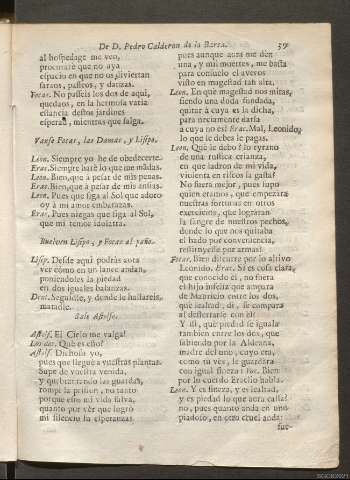 De D. Pedro Calderon de la Barca. 39
al hospedage me veo,
procuraré que no aya
espacio en que no os diviertan
saraos, passeos, y danzas.
Focas. No passeis los dos de aqui,
quedaos, en la hermosa varia
estancia destos jardines
esperad, mientras que salga.
Vanse Focas, las Damas, y Lisipo.
Leon. Siempre yo he de obedecerte.
Erac. Siempre haré lo que me mãdas.
Leon. Bien, que à pesar de mis penas.
Erac. Bien, que à pesar de mis ansias.
Leon. Pues que siga al Sol que adoro
oy à mi amor embarazas.
Erac. Pues niegas que siga al Sol,
que mi temor idolatra.
Buelven Lisipo, y Focas al paño.
Lisip. Desde aqui podràs aora
ver còmo en un lance andan,
poniendoles la piedad
en dos iguales balanzas.
Seguidle, y donde le hallareis,
matadle.
Sale Astolfo.
Astolf. El Cielo me valga!
Los dos. Què es esto?
Astolf. Dichoso yo,
pues que llegué à vuestras plantas.
Supe de vuestra venida,
y quebrantando las guardas,
rompí la prision, no tanto
porque esto mi vida salva,
quanto por ver que logro
mi silencio la esperanza:
pues aunque aora me den
una, y mil muertes, me basta
para consuelo el averos
visto en magestad tan alta.
Leon. En què magestad nos miras,
siendo una duda fundada,
quitar à cuya es la dicha,
para neciamente darla
à cuya no es? Erac. Mal, Leonido,
lo que le debes le pagas.
Leon. Què le debo? lo tyrano
de una rustica crianza,
en que ladron de mi vida,
viviente en riscos la gasta?
No fuera mejor, pues supo
quien eramos, que empezara
nuestras fortunas en otros
exercicios, que lograran
la sangre de nuestros pechos,
donde lo que nos quitaba
el hado por conveniencia,
restituyesse por armas?
Focas. Bien discurre por lo altivo
Leonido. Erac. Si es cosa clara,
que conocido él, no fuera
el hijo infeliz que ampara
de Mauricio entre los dos,
què lealtad, di, se compara
al desterrarse con él?
Y si, què piedad se iguala
tan bien entre los dos, que
sabiendo por la Aldeana,
madre del uno, cuyo era,
como tu vès, le guardára
con igual fineza: Foc. Bien
por lo cuerdo Eraclio habla.
Leon. Y es fineza, y es lealtad,
y es piedad lo que aora calla?
no, pues quanto anda en uno
piadoso, en otro cruel anda:
sue-